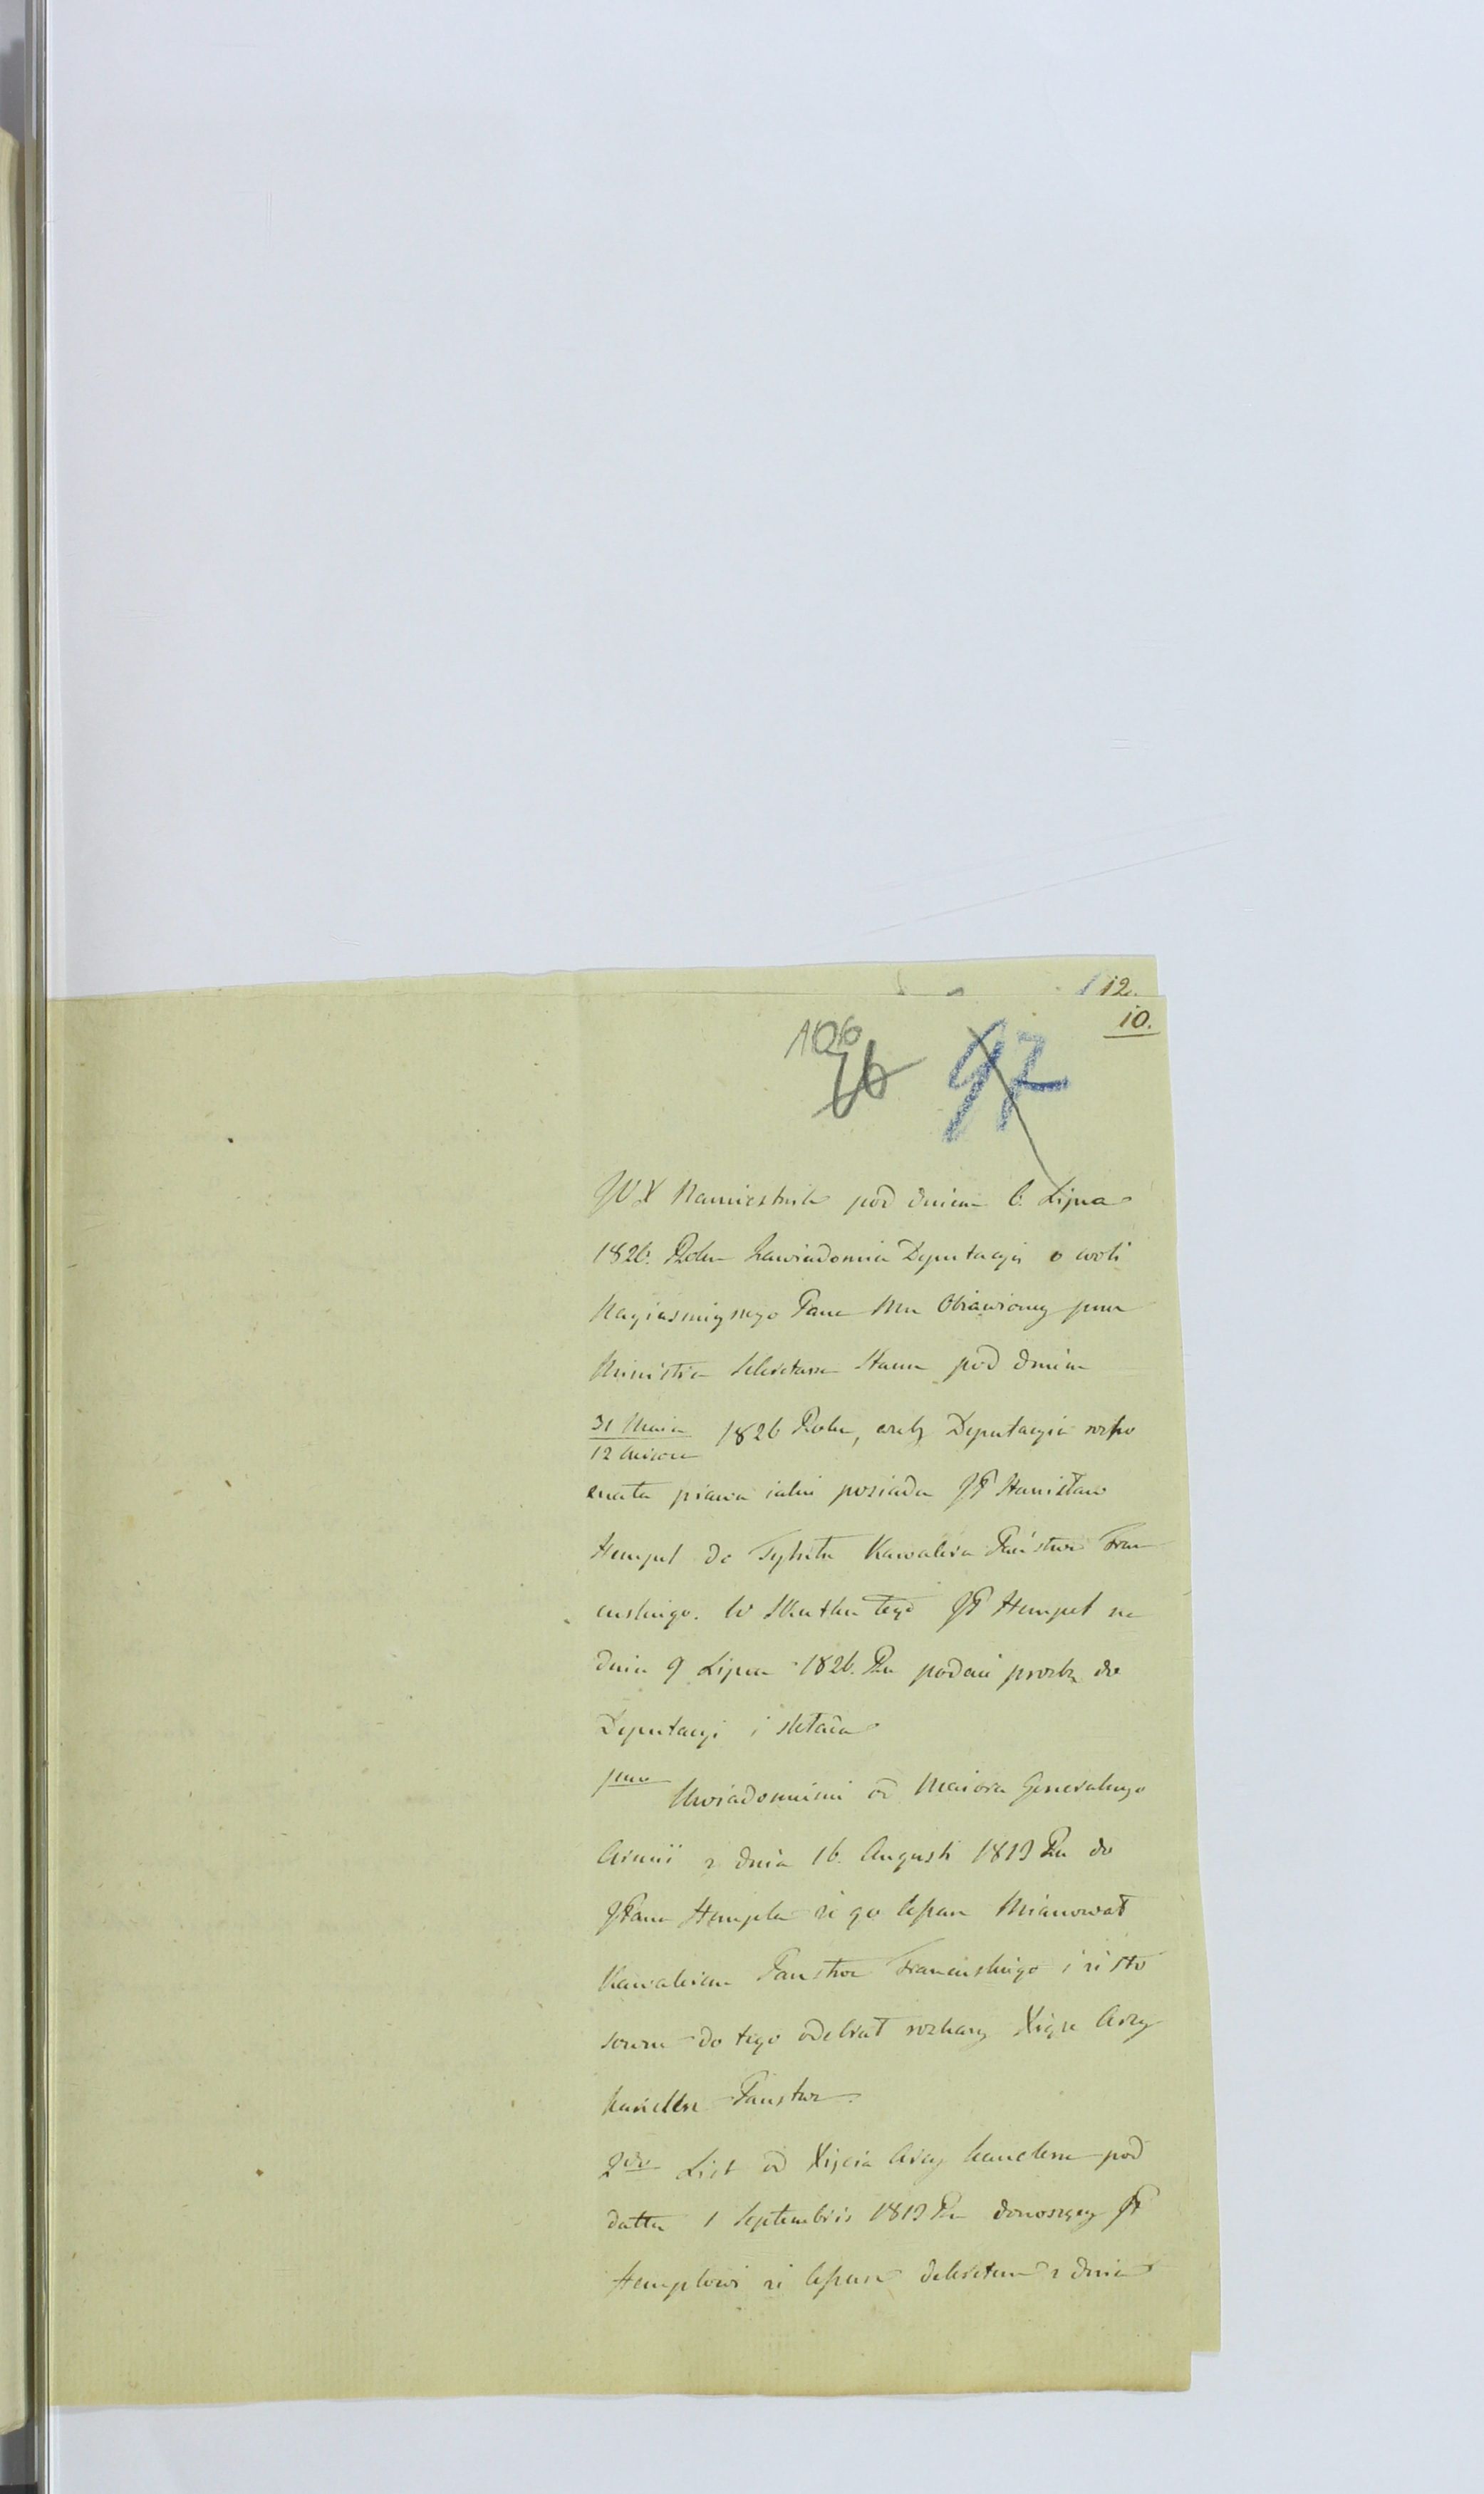 112.
10.
106
76 97
JOX Namiestnik pod dniem 6. Lipca
1826. Roku Zawiadomia Deputacyą o woli
Nayiasnieyszego Pana Mu Obiawioney przez
Ministra Sekretarza Stanu pod dniem
31 Maia
12 Czerwca 1826 Roku, azeby Deputacyia rozpo
znała prawa iakie posiada JP Stanisław
Hempel do Tytułu Kawalera Państwa Fran
cuskiego. W Skutku tego JP Hempel na
dniu 9 Lipca 1826. Ru podaie prozbę do
Deputacyi i składa
pmo Uwiadomienie od Maiora Generalnego
Armii z dnia 16. Augusti 1813 Ru do
JPana Hempla ze go Cesarz Mianował
Kawalerem Panstwa Francuskiego i ze sto
sowne do tego odebrał rozkazy Xiąże Arcy
kanclerz Panstwa.
2do List od Xięcia Arcy kanclerza pod
dattą 1 Septembris 1813 Ru donoszący JP
Hemplowi ze Cesarz dekretem z dnia